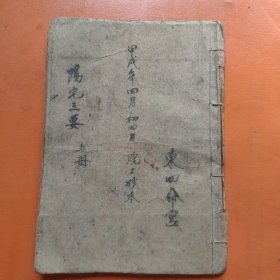 東四命宮
甲戌年四月初四日 院上抄本
陽宅三要 上册